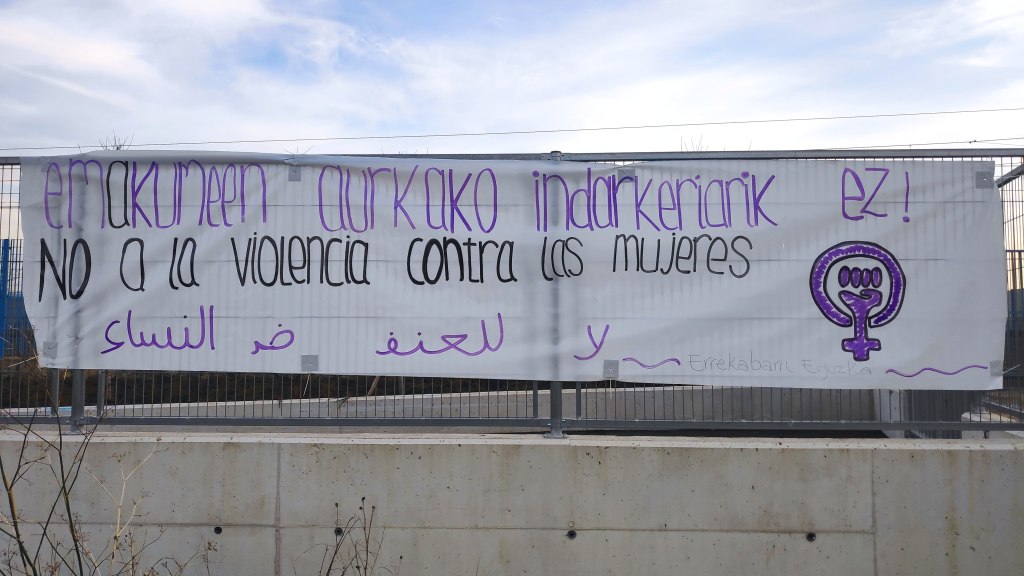 emakumeen aurkako indarkeriarik ez!
NO a la violencia contra las mujeres
لا للعنف ضد النساء
Errekabarri Eguzka